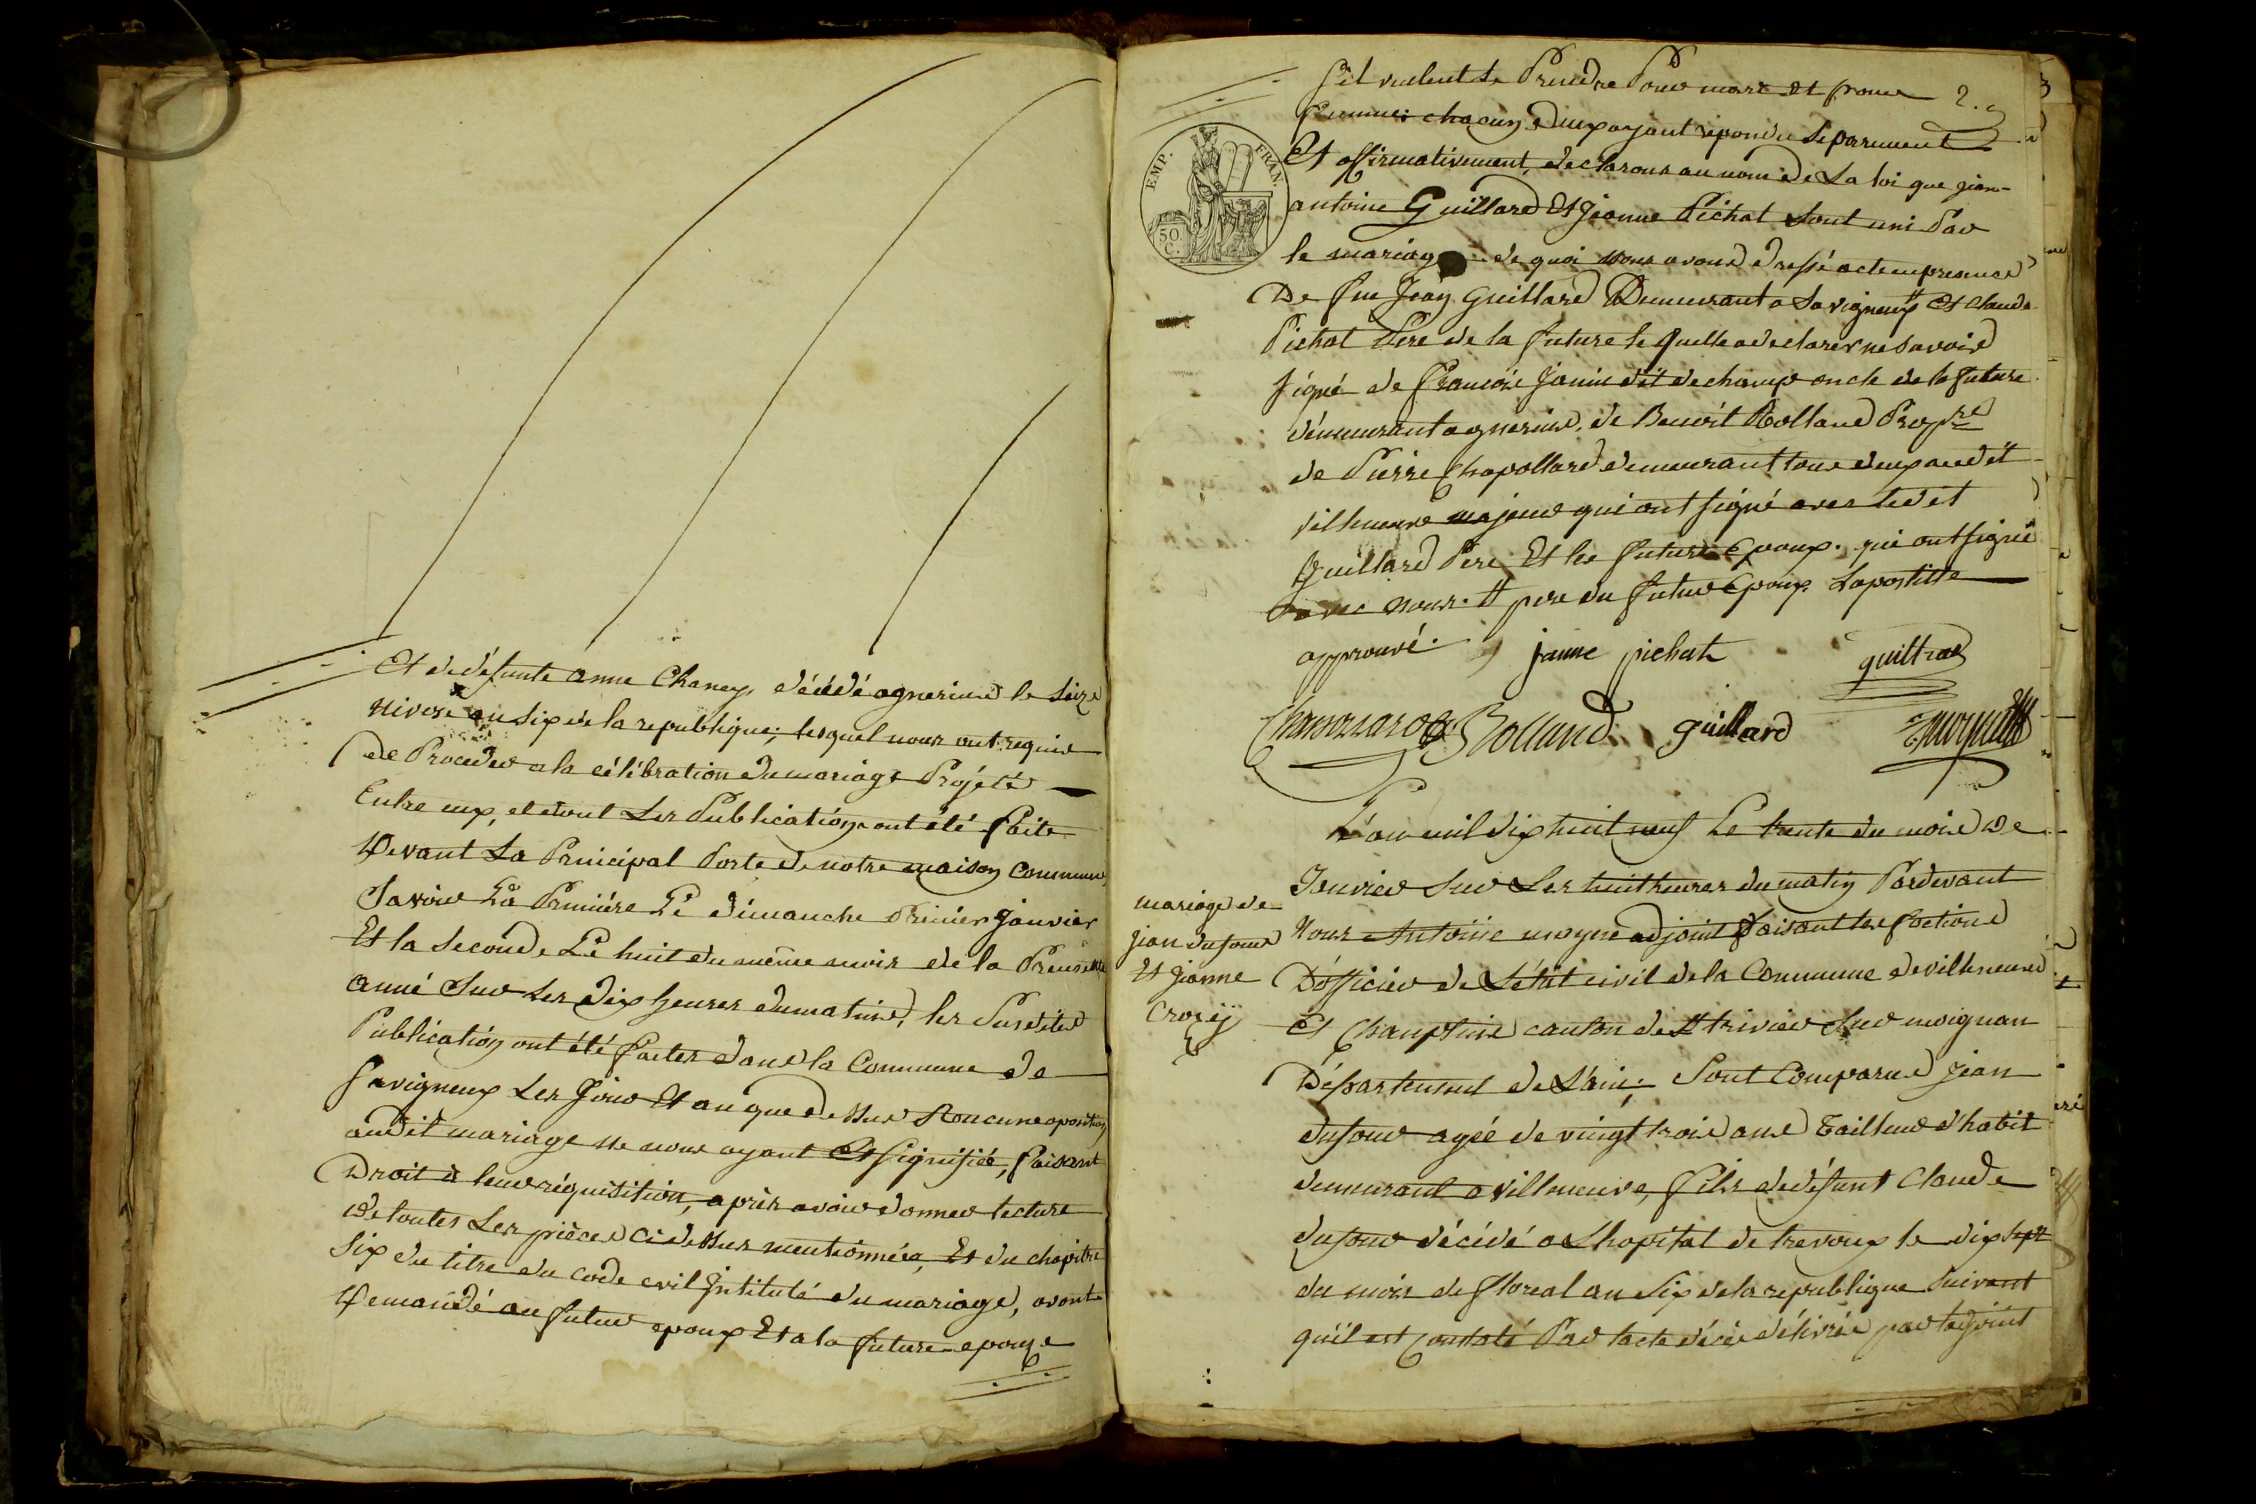 Et de défunte anne Chaney, décédé agnerins le Seize
Nivose an Six de la republique; lesquel nous ont requis
de Proceder a la célébration du mariage Projété
Entre eux, et dont Les Publication ont été faite
Devant La Principal Porte de notre maison Commune
Savoir La Premiére Le dimanche Prémier Janvier
Et la Seconde Le huit du même mois de la Presente
anné Sur Les Dix heures du matin, les Susdites
Publication ont été faites dans la Commune de
Savigneux Les Jour Et an que dessus Aoucune oposition
audit mariage ne nous ayant Et Signifiée, faisant
Droit à leur réquisition, après avoir donner lecture
de toutes Les pièces Cidessus mentionnées, Et du chapitre
Six du titre du Code civil Intitulé du mariage, avont
Demandé au futur epoux Et a la future epouze
2.
S'il veulent Se Prendre Pour mari et pour
femme: chacun d'eux ayant repondu Séparement
Et affirmativement, declarons au nom de La loi que jean-
antoine Guillard Et Jeanne Pichat Sont uni Par
le mariage de quoi nous avons dressé acte en presence
EMP. FRAN.
50.
C.
De Jean Guillard Demeurant a Savigneux # Et Claude
Pichat Pere de la future le quelle a declarer ne Savoir
Signé de françois Janin dit dechamp oncle de la future
démeurant agnerins, de Benoit Rolland Prop.re
de Pierre Chapollard demeurant tous deux audit
Villeneuve majeur qui ont Signé avec ledit
Guillard Pere Et les futurs Epoux. qui ont Signé
avec nous. # pere du futur Epoux Lapostille
approuvé.
janne pichat
guillrad
Rolland
guillard
L'an mil dix huit neuf Le trente du mois de
Janvier Sur Les huit heures du matin Pardevant
mariage de
jean dufour
Et Jeanne
Crozy
Nous Antoine moyne adjoint faisant les foctions
D'officier de L'étit civil de la Commune de Villeneuve
Et Chanptein canton de St trivier Sur moignan
Département de L'ain; Sont Comparus Jean
dufour agée de vingt trois ans Tailleur d'habit
demeurant a Villeneuve, fils de défunt Claude
dufour décédé a Lhopital de trevoux le dix Sept
du mois de floreal an Six de la republique Suivant
qu'il est Constaté Par lacte décés délivrée par ladjoint